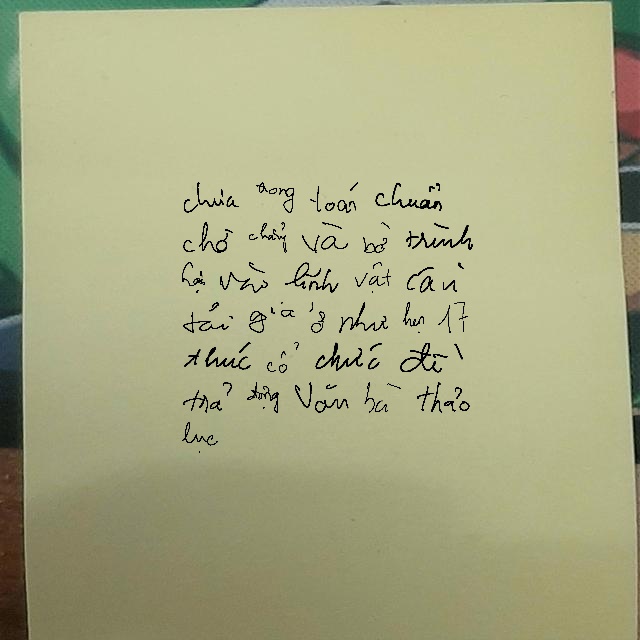 chưa trong toán chuẩn
chở chẳng và bờ trình
hại vào lĩnh vật cái
tái giá ở như hẹn 17
thuế cổ chức đi
trả động Văn bà thảo
lục